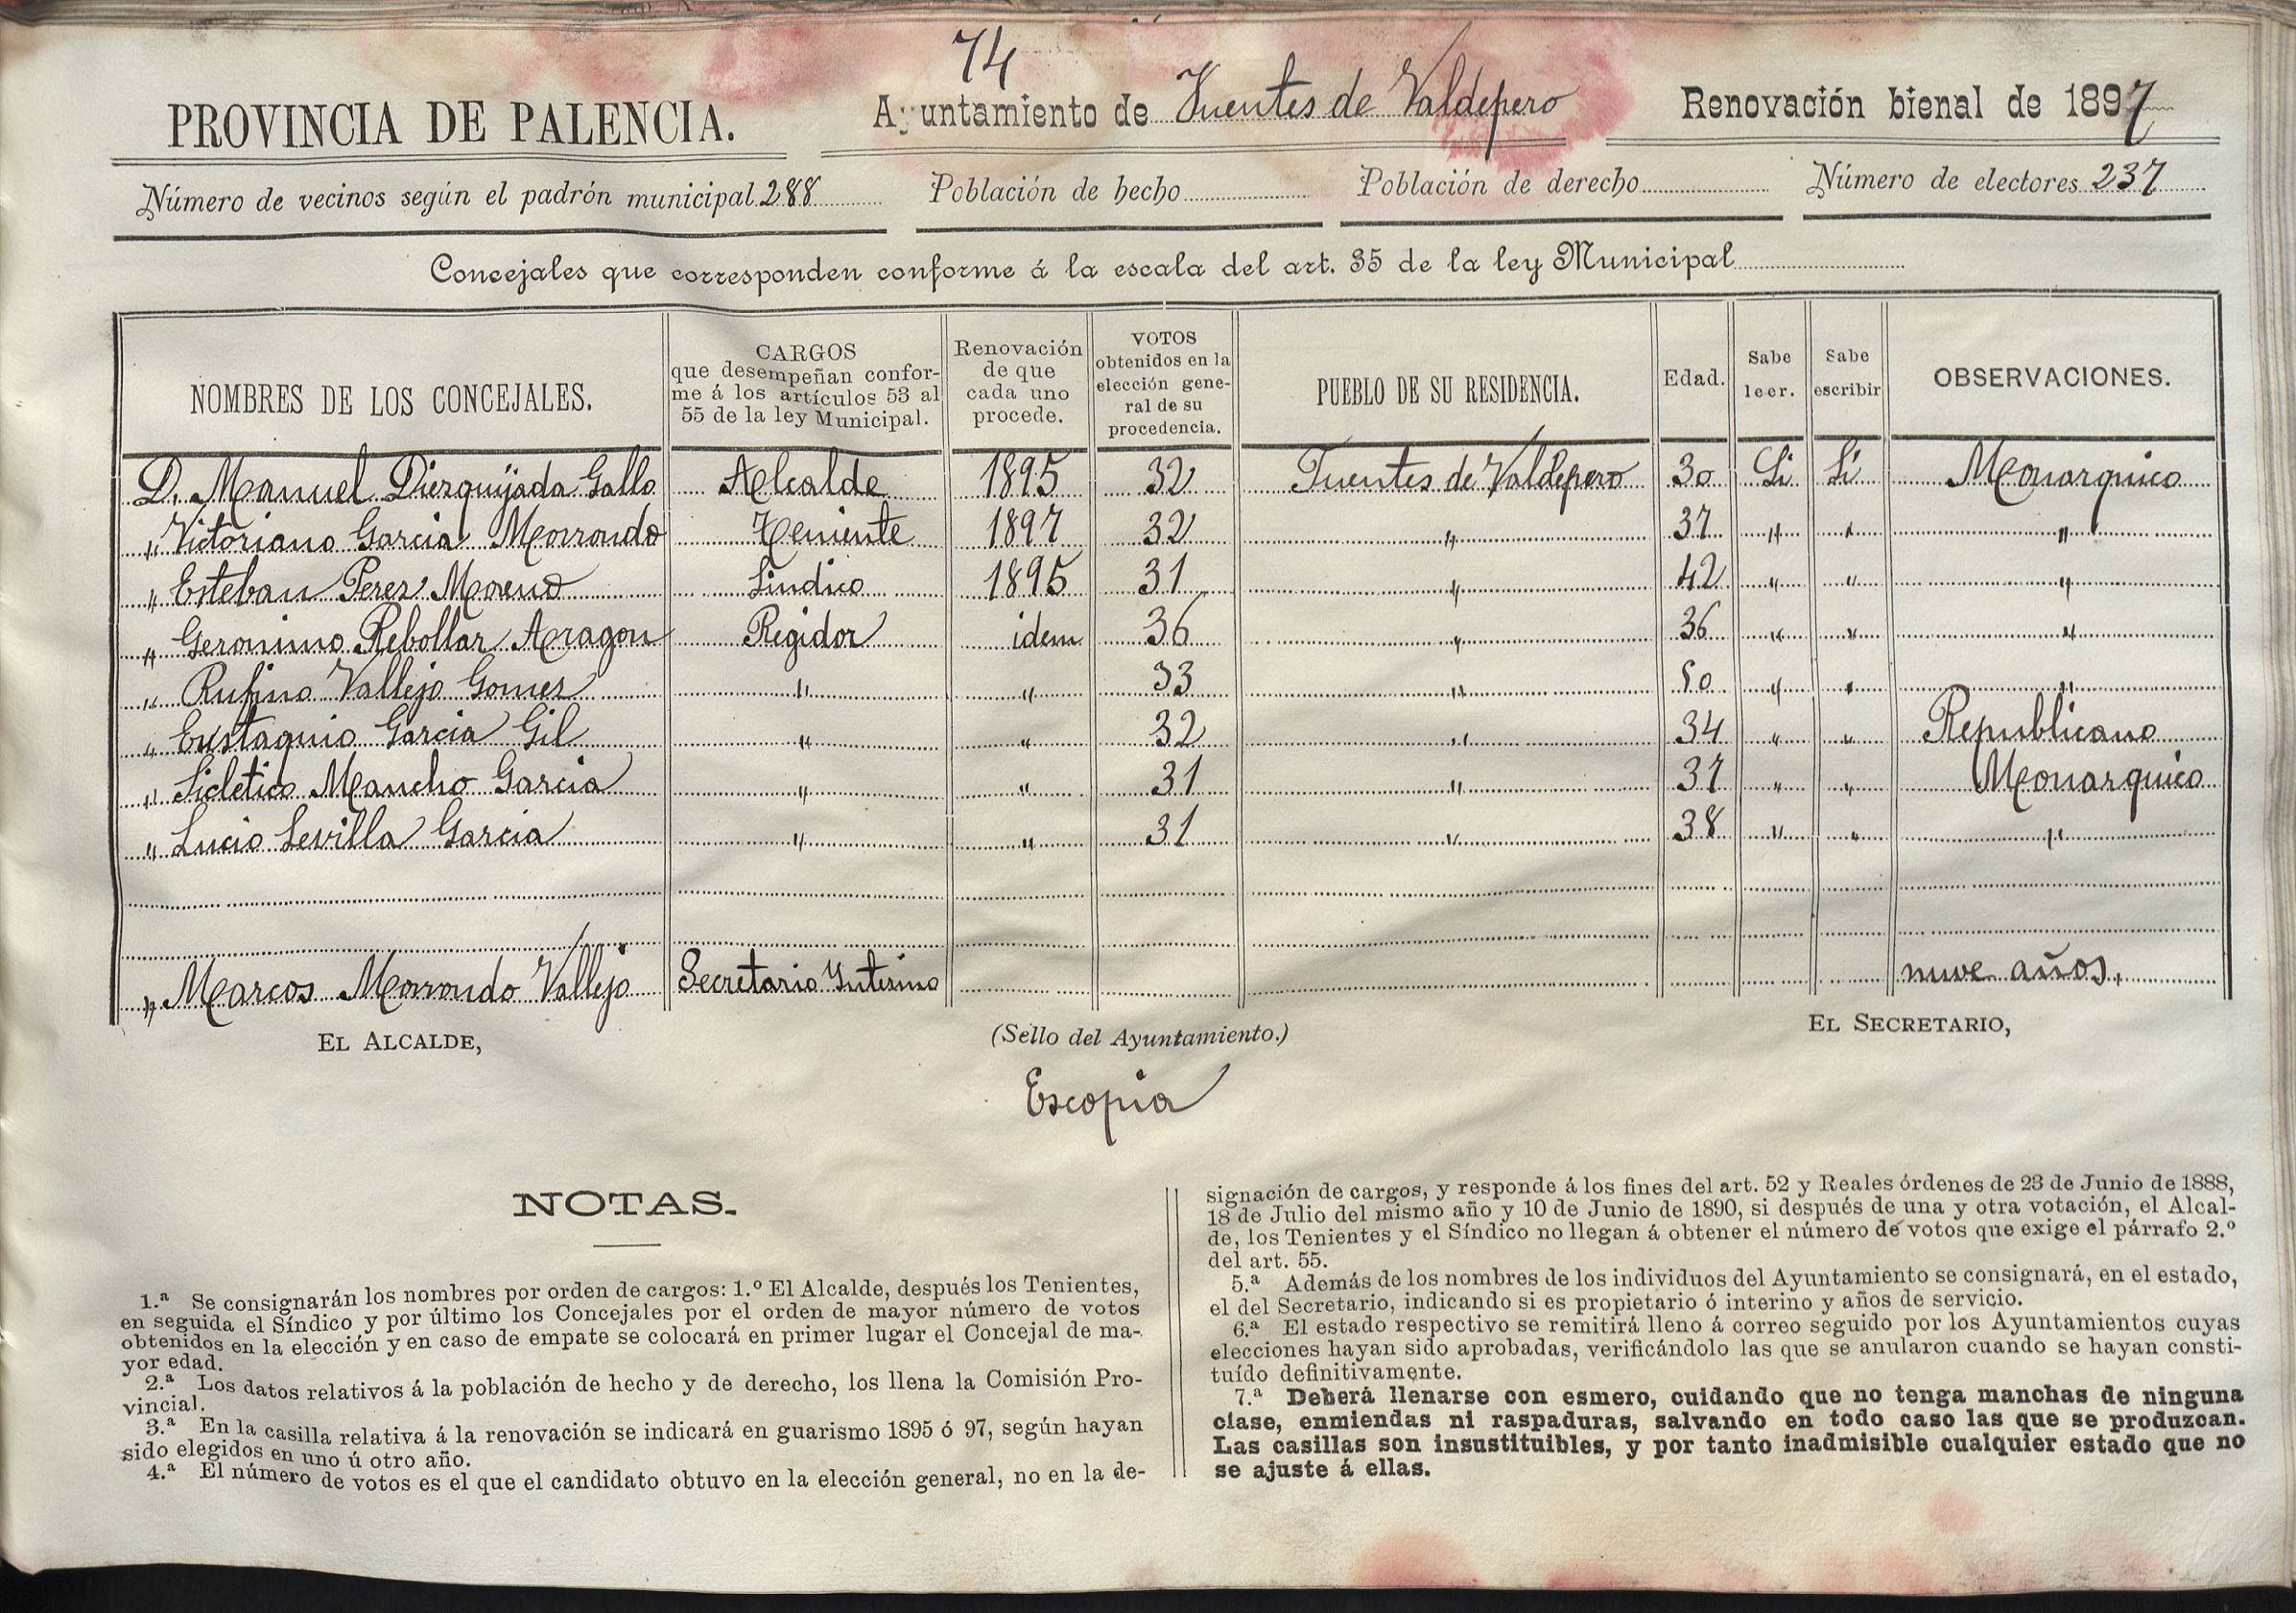 74
PROVINCIA DE PALENCIA.
Ayuntamiento de Fuentes de Valdepero
Renovación bienal de 1897
Número de vecinos según el padrón municipal 288
Población de hecho
Población de derecho
Número de electores 237
Concejales que corresponden conforme á la escala del art. 35 de la ley Municipal
NOMBRES DE LOS CONCEJALES.
CARGOS
que desempeñan confor-
me á los artículos 53 al
55 de la ley Municipal.
Renovación
de que
cada uno
procede.
VOTOS
obtenidos en la
elección gene-
ral de su
procedencia.
PUEBLO DE SU RESIDENCIA.
Edad.
Sabe
leer.
Sabe
escribir
OBSERVACIONES.
D. Manuel Dierquijada Gallo Alcalde 1895 32 Fuentes de Valdepero 30 Si Si Monarquico
" Victoriano Garcia Morrondo Teniente 1897 32 " 37 " " "
" Esteban Perez Moreno Sindico 1895 31 " 42 " " "
" Geronimo Rebollar Aragon Regidor idem 36 " 36 " " "
" Rufino Vallejo Gomez " " 33 " 50 " " "
" Eustaquio Garcia Gil " " 32 " 34 " " Republicano
" Sicletico Mancho Garcia " " 31 " 37 " " Monarquico
" Lucio Sevilla Garcia " " 31 " 38 " " "
" Marcos Morrondo Vallejo Secretario Interino nuve años,
EL ALCALDE,
(Sello del Ayuntamiento.)
EL SECRETARIO,
Escopia
NOTAS.
1.ª Se consignarán los nombres por orden de cargos: 1.º El Alcalde, después los Tenientes,
en seguida el Síndico y por último los Concejales por el orden de mayor número de votos
obtenidos en la elección y en caso de empate se colocará en primer lugar el Concejal de ma-
yor edad.
2.ª Los datos relativos á la población de hecho y de derecho, los llena la Comisión Pro-
vincial.
3.ª En la casilla relativa á la renovación se indicará en guarismo 1895 ó 97, según hayan
sido elegidos en uno ú otro año.
4.ª El número de votos es el que el candidato obtuvo en la elección general, no en la de-
signación de cargos, y responde á los fines del art. 52 y Reales órdenes de 23 de Junio de 1888,
18 de Julio del mismo año y 10 de Junio de 1890, si después de una y otra votación, el Alcal-
de, los Tenientes y el Síndico no llegan á obtener el número de votos que exige el párrafo 2.º
del art. 55.
5.ª Además de los nombres de los individuos del Ayuntamiento se consignará, en el estado,
el del Secretario, indicando si es propietario ó interino y años de servicio.
6.ª El estado respectivo se remitirá lleno á correo seguido por los Ayuntamientos cuyas
elecciones hayan sido aprobadas, verificándolo las que se anularon cuando se hayan consti-
tuído definitivamente.
7.ª Deberá llenarse con esmero, cuidando que no tenga manchas de ninguna
clase, enmiendas ni raspaduras, salvando en todo caso las que se produzcan.
Las casillas son insustituibles, y por tanto inadmisible cualquier estado que no
se ajuste á ellas.